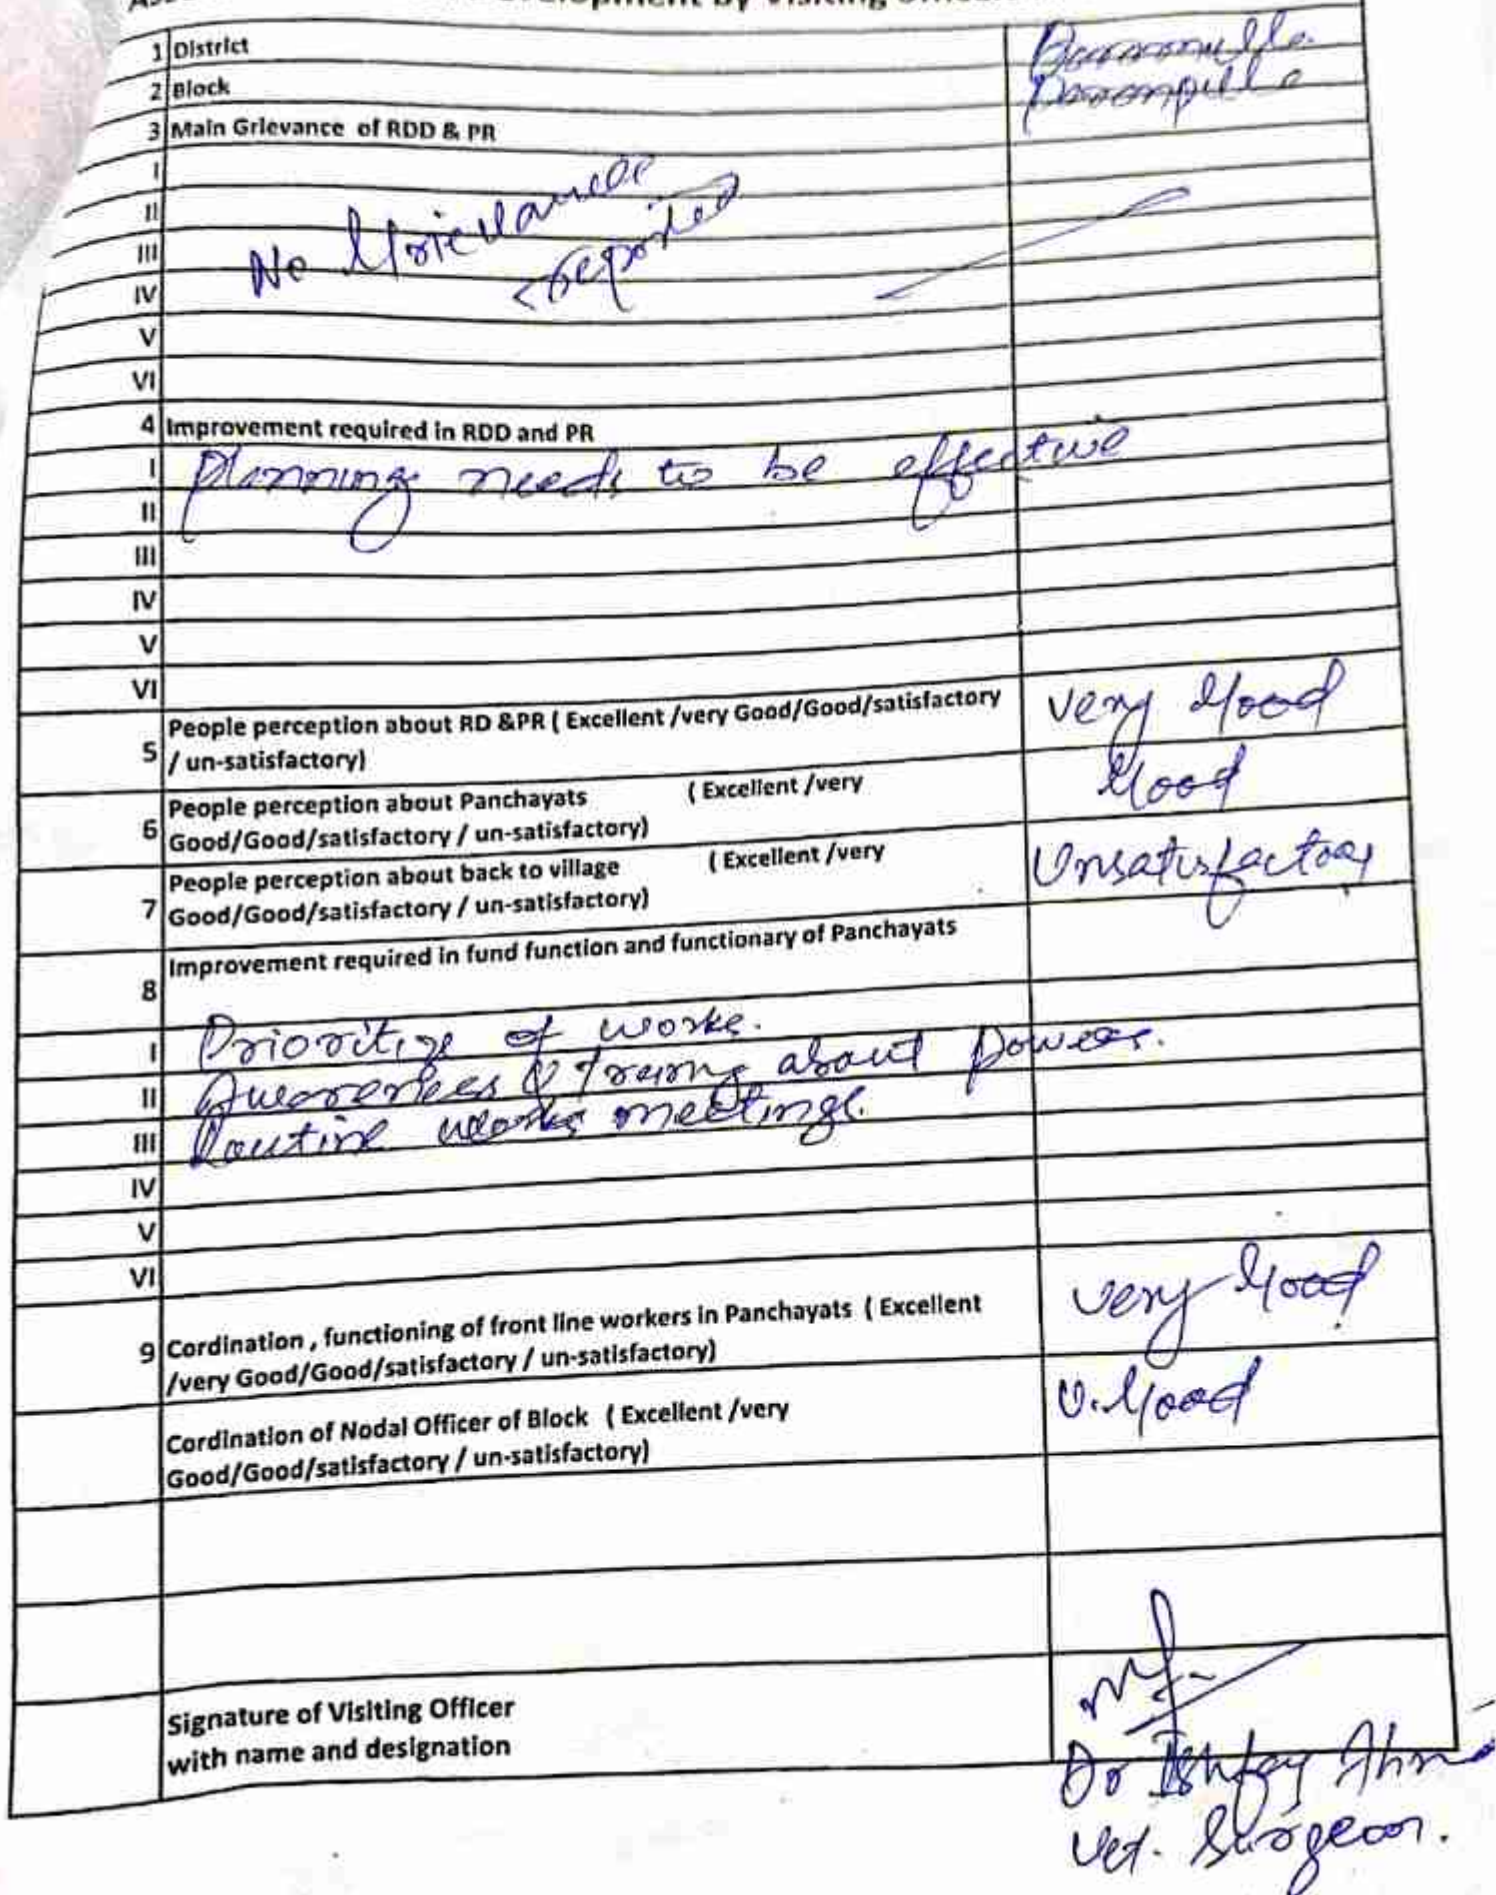 by Visiting
1 District
Baramulla.
2 Block
3 Main Grievance of RDD & PR
I
II
III
IV
V
VI
No Grievance
reported
4 Improvement required in RDD and PR
I Planning needs to be effective
II
III
IV
V
VI
5 People perception about RD &PR ( Excellent /very Good/Good/satisfactory
/ un-satisfactory)
very Good
6 People perception about Panchayats ( Excellent /very
Good/Good/satisfactory / un-satisfactory)
Good
7 People perception about back to village ( Excellent /very
Good/Good/satisfactory / un-satisfactory)
Unsatisfactory
8 Improvement required in fund function and functionary of Panchayats
I Prioritize of works.
II about powers.
III Routine works meetings.
IV
V
VI
9 Cordination , functioning of front line workers in Panchayats ( Excellent
/very Good/Good/satisfactory / un-satisfactory)
very Good
Cordination of Nodal Officer of Block ( Excellent /very
Good/Good/satisfactory / un-satisfactory)
V. Good
Signature of Visiting Officer
with name and designation
Dr Ishfaq
Vet. Surgeon.